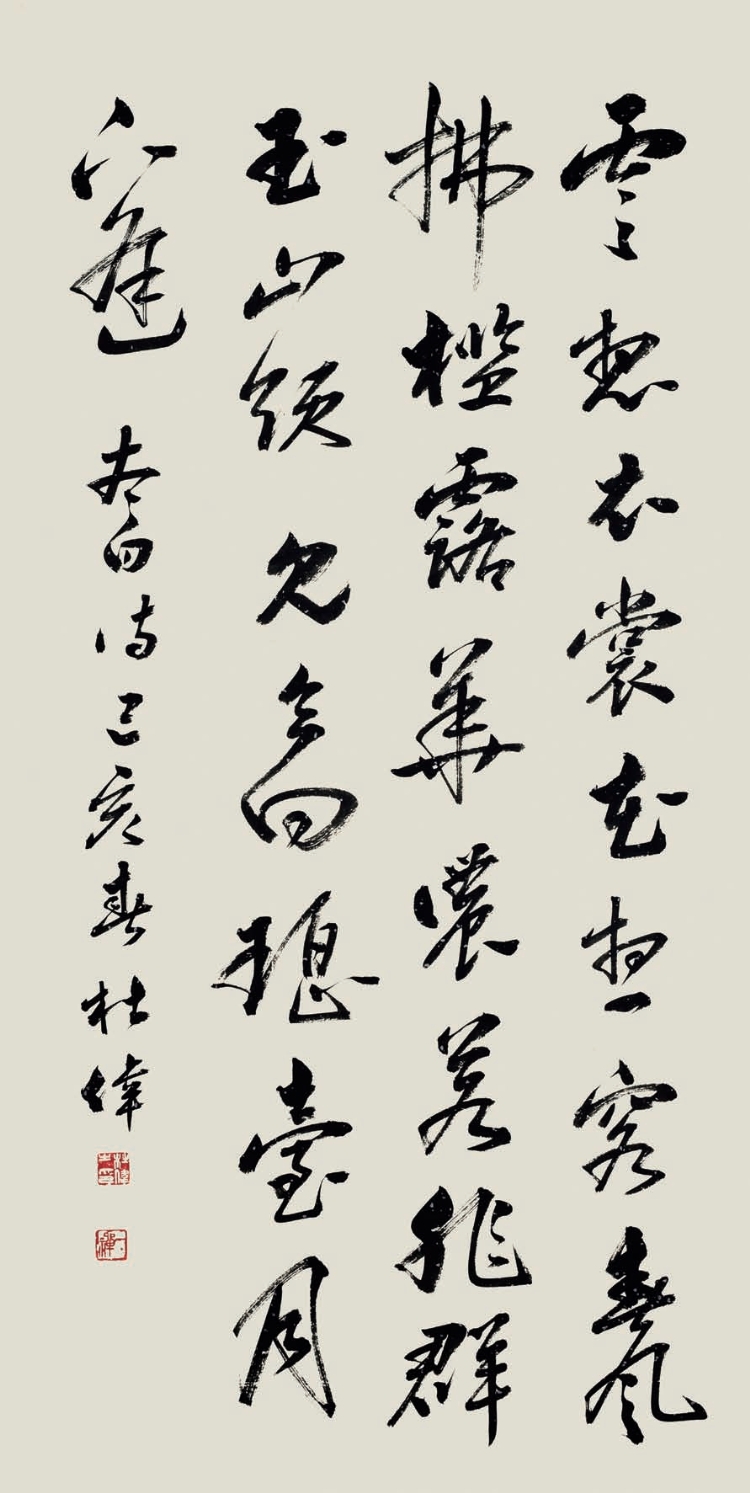 雲想衣裳花想容春風
拂檻露華濃若非群
玉山頭見會向瑤臺月
下逢 李白詩己亥春杜偉